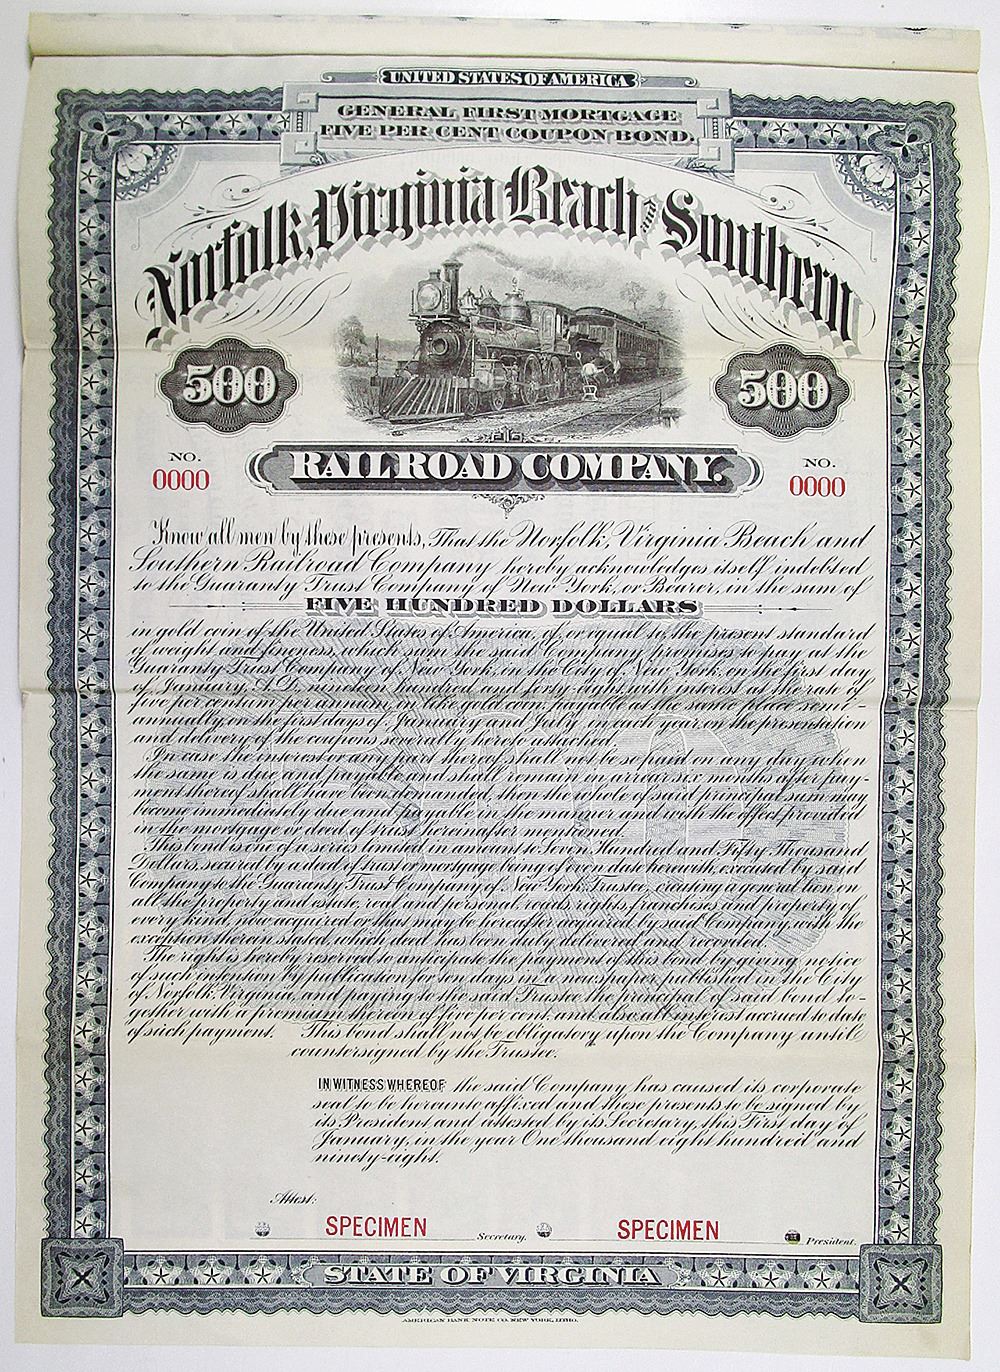 UNITED STATES OF AMERICA
GENERAL FIRST MORTGAGE
FIVE PER CENT COUPON BOND.
Norfolk, Virginia Beach and Southern
500 500
RAILROAD COMPANY.
NO. NO.
0000 0000
Know all men by these presents, That the Norfolk, Virginia Beach and
Southern Railroad Company hereby acknowledges itself indebted
to the Guaranty Trust Company of New York, or Bearer, in the sum of
FIVE HUNDRED DOLLARS
in gold coin of the United States of America, of, or equal to, the present standard
of weight and fineness, which sum the said Company promises to pay at the
Guaranty Trust Company of New York, in the City of New York, on the first day
of January, A.D. nineteen hundred and forty-eight, with interest at the rate of
five per centum per annum, in like gold coin, payable at the same place semi-
annually, on the first days of January and July, in each year, on the presentation
and delivery of the coupons severally hereto attached.
In case the interest or any part thereof shall not be so paid on any day when
the same is due and payable, and shall remain in arrear six months after pay-
ment thereof shall have been demanded, then the whole of said principal sum may
become immediately due and payable in the manner and with the effect provided
in the mortgage or deed of trust hereinafter mentioned.
This bond is one of a series limited in amount to Seven Hundred and Fifty Thousand
Dollars, secured by a deed of trust or mortgage being of even date herewith, executed by said
Company to the Guaranty Trust Company of New York, Trustee, creating a general lien on
all the property and estate, real and personal, roads, rights, franchises and property of
every kind, now acquired or that may be hereafter acquired by said Company, with the
exception therein stated, which deed has been duly delivered and recorded.
The right is hereby reserved to anticipate the payment of this bond by giving notice
of such intention by publication for ten days in a newspaper published in the City
of Norfolk, Virginia, and paying to the said Trustee the principal of said bond to-
gether with a premium thereon of five per cent. and also all interest accrued to date
of such payment. This bond shall not be obligatory upon the Company until
countersigned by the Trustee.
IN WITNESS WHEREOF the said Company has caused its corporate
seal to be hereunto affixed and these presents to be signed by
its President and attested by its Secretary, this First day of
January, in the year One thousand eight hundred and
ninety-eight.
Attest:
SPECIMEN Secretary. SPECIMEN President.
STATE OF VIRGINIA
AMERICAN BANK NOTE CO. NEW YORK, LITHO.